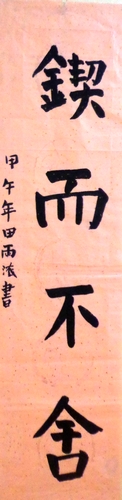 鍥而不舍
甲午年田雨浓書